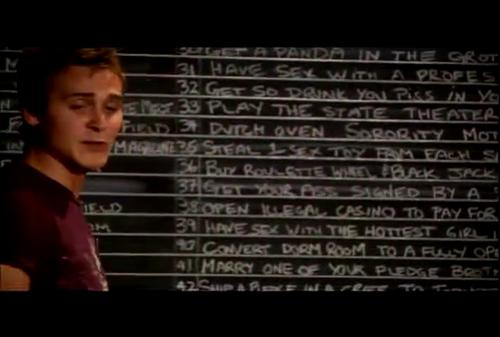 30 GET A PANDA IN THE GROT
31 HAVE SEX WITH A PROFES
32 GET SO DRUNK YOU PISS IN YO
33 PLAY THE STATE THEATER
FIELD 34 DUTCH OVEN SORORITY MOT
MAGAZINE 35 STEAL 1 SEX TOY FROM EACH S
36 BUY ROULETTE WHEEL & BLACK JACK
37 GET YOUR ASS SIGNED BY A
IELD 38 OPEN ILLEGAL CASINO TO PAY FOR
OM 39 HAVE SEX WITH THE HOTTEST GIRL I
40 CONVERT DORM ROOM TO A FULLY OP
41 MARRY ONE OF YOUR PLEDGE BROT
42 SHIP A IN A TO